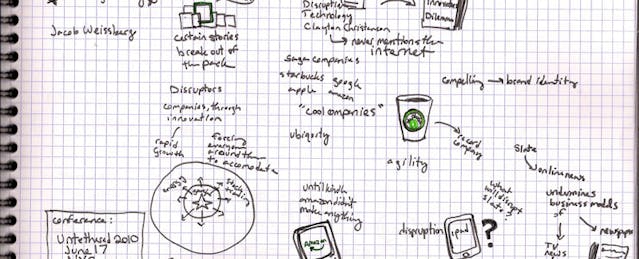 Disruptive
Technology
Clayton Christensen
→ never mentions the
internet
Innovators
Dilemma
Jacob Weissberg
certain stories
break out of
the pack
saga companies
starbucks google
apple amazon
"cool companies"
compelling → brand identity
Disruptors
companies, through
innovation
rapid
growth
forcing
everyone
around them
to accomodate
ubiquity
record
company
agility
Slate
online news
what
will disrupt
slate?
undermines
business models
of
TV
news
newspaper
until kindle
amazon didnt
make anything
amazon
disruption
ipad
?
conference:
Untethered 2010
June 17
NYC